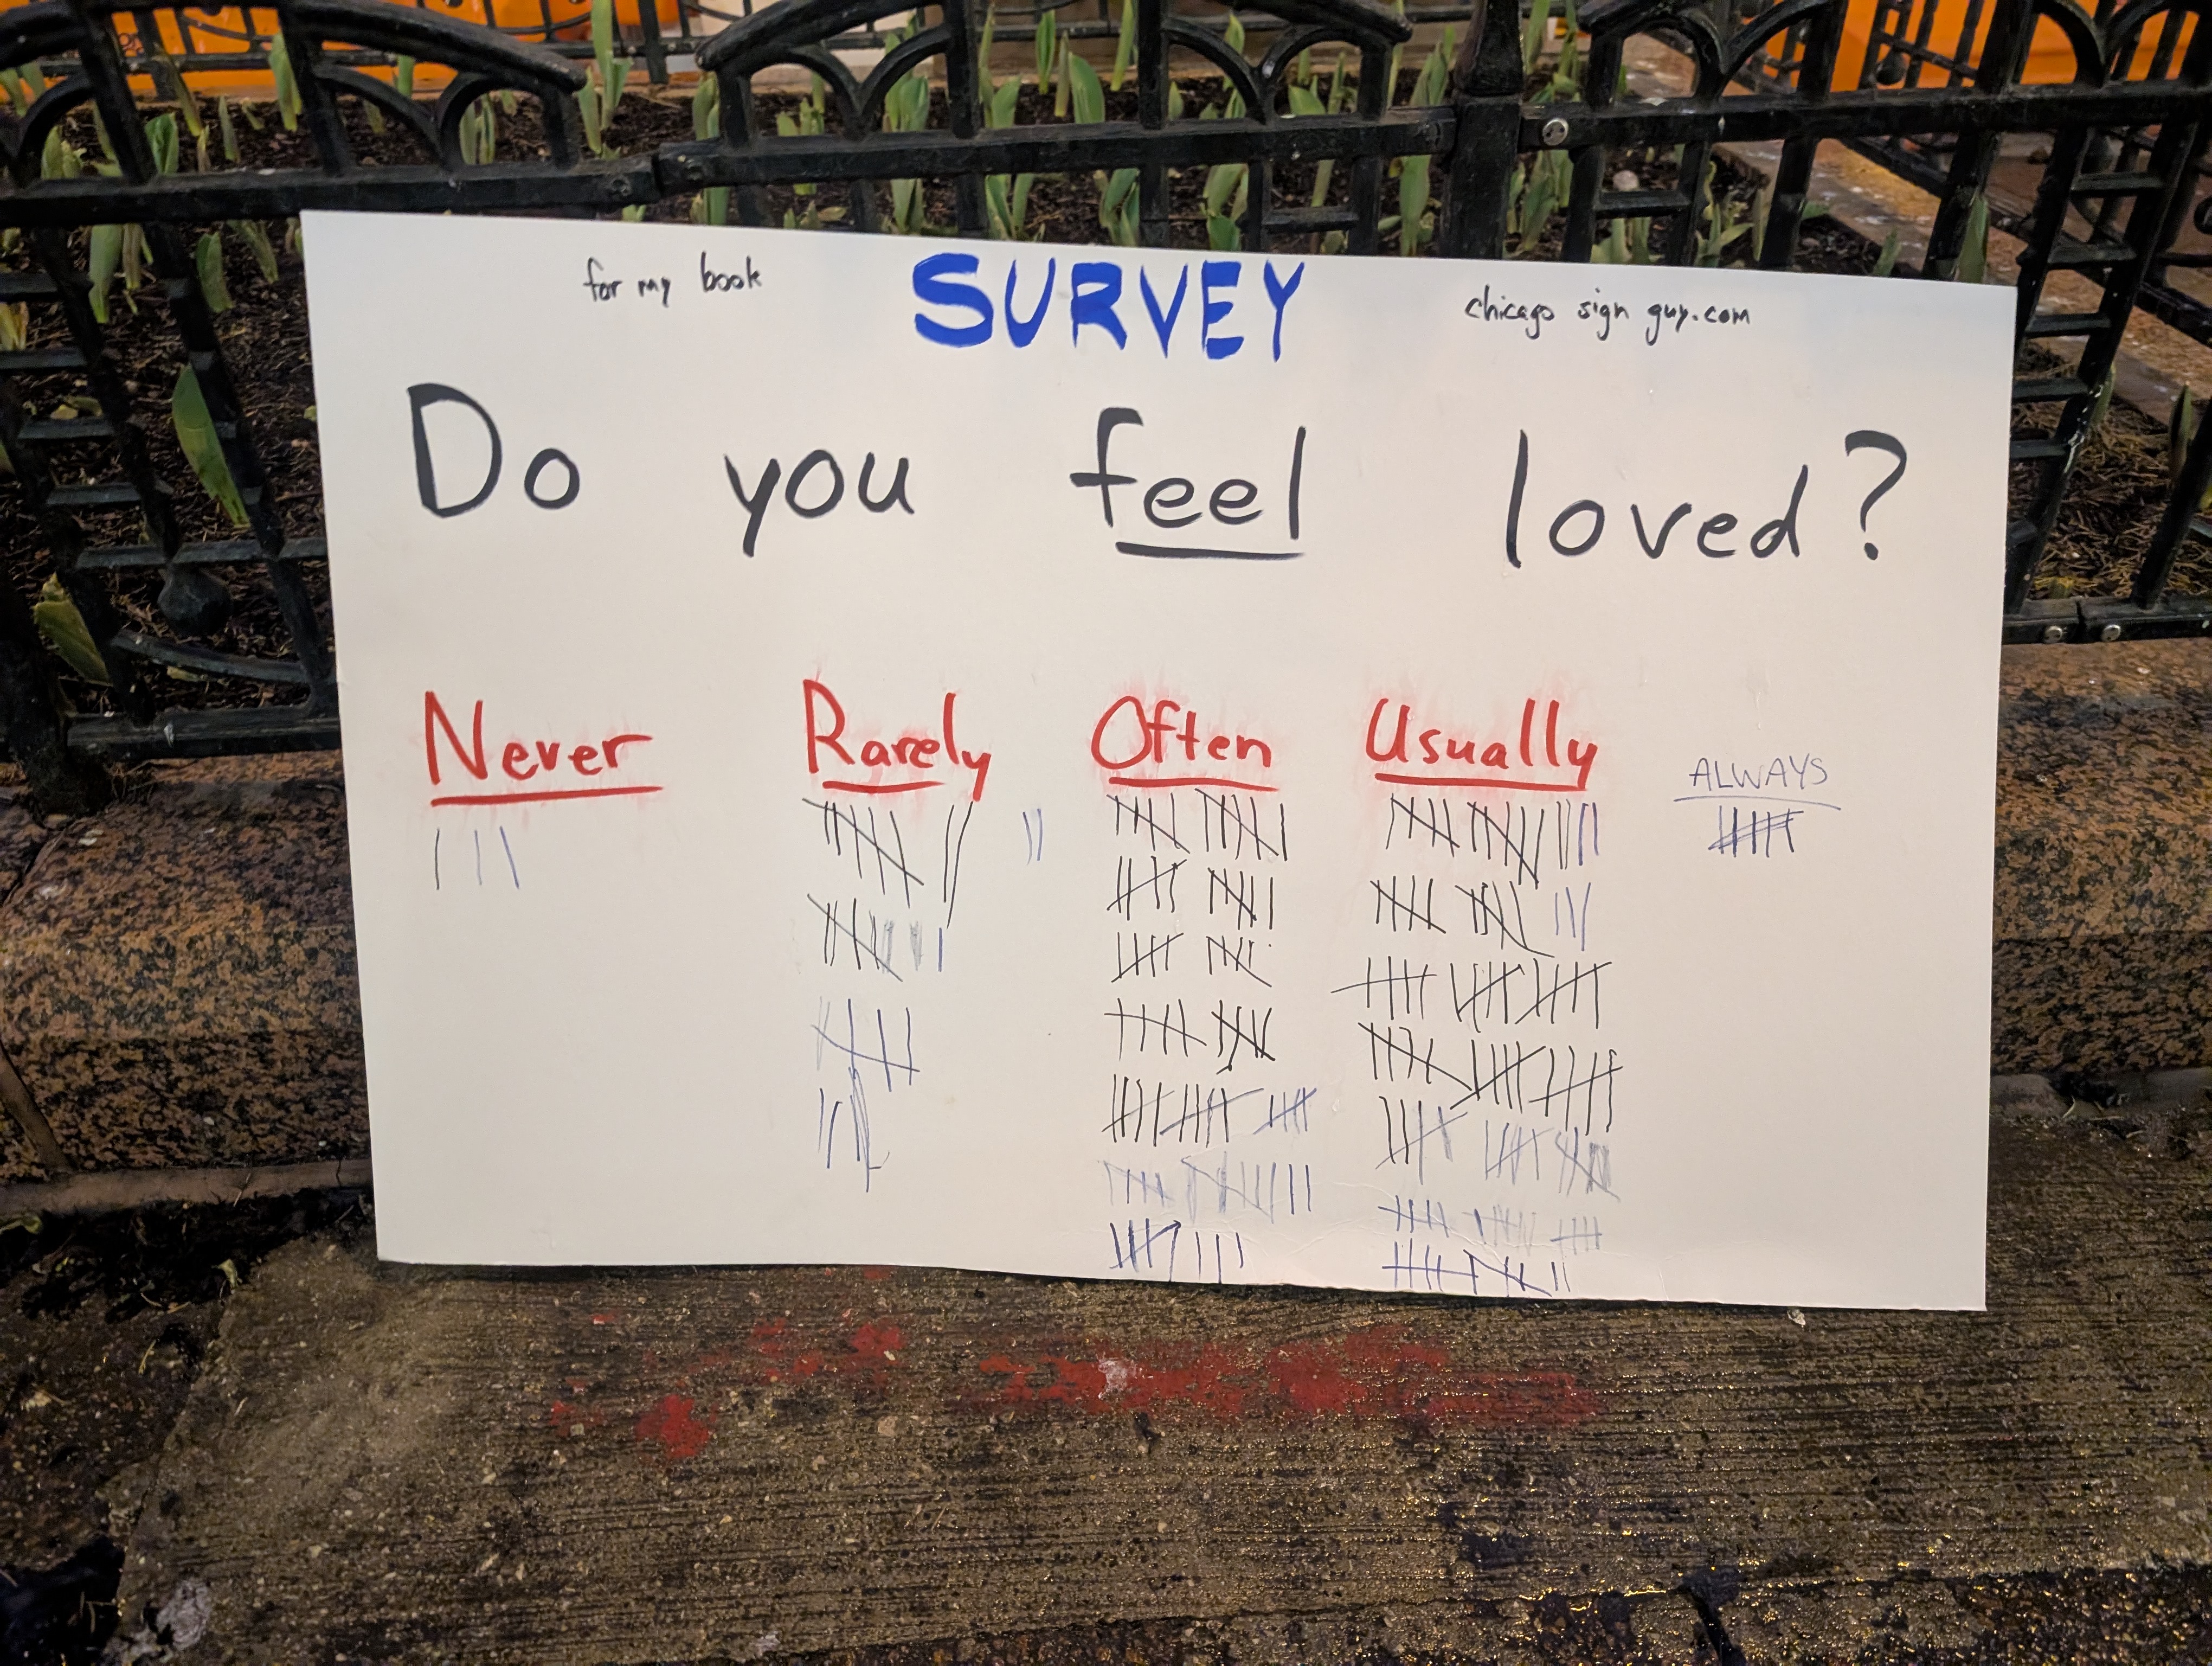 for my book SURVEY chicago sign guy.com
Do you feel loved?
Never Rarely Often Usually ALWAYS